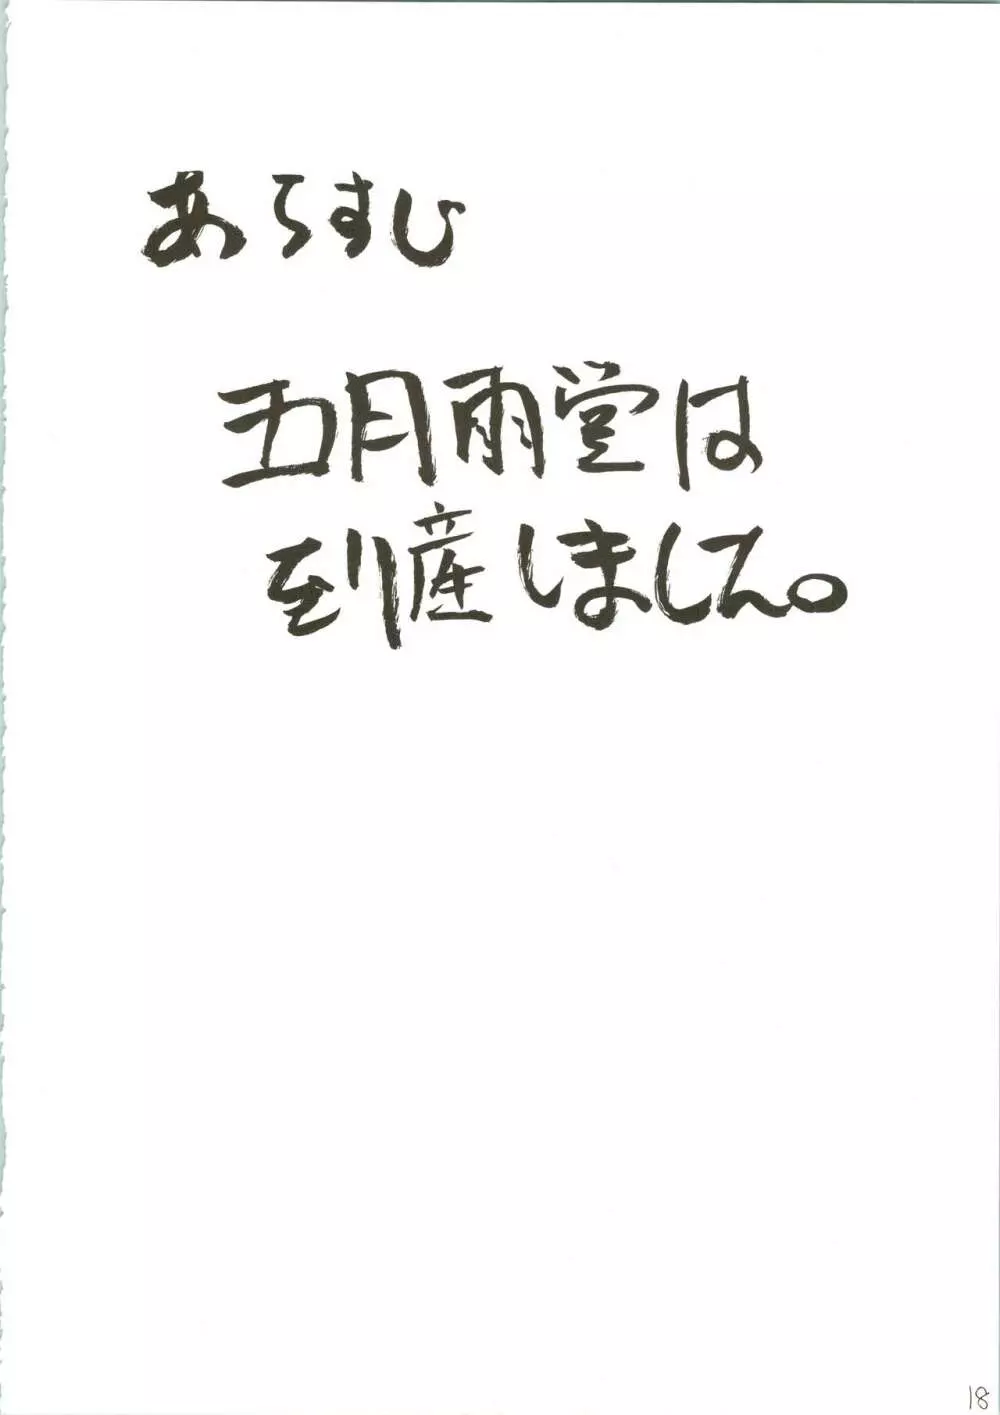 あらすじ
五月雨堂は
到産しました。
18